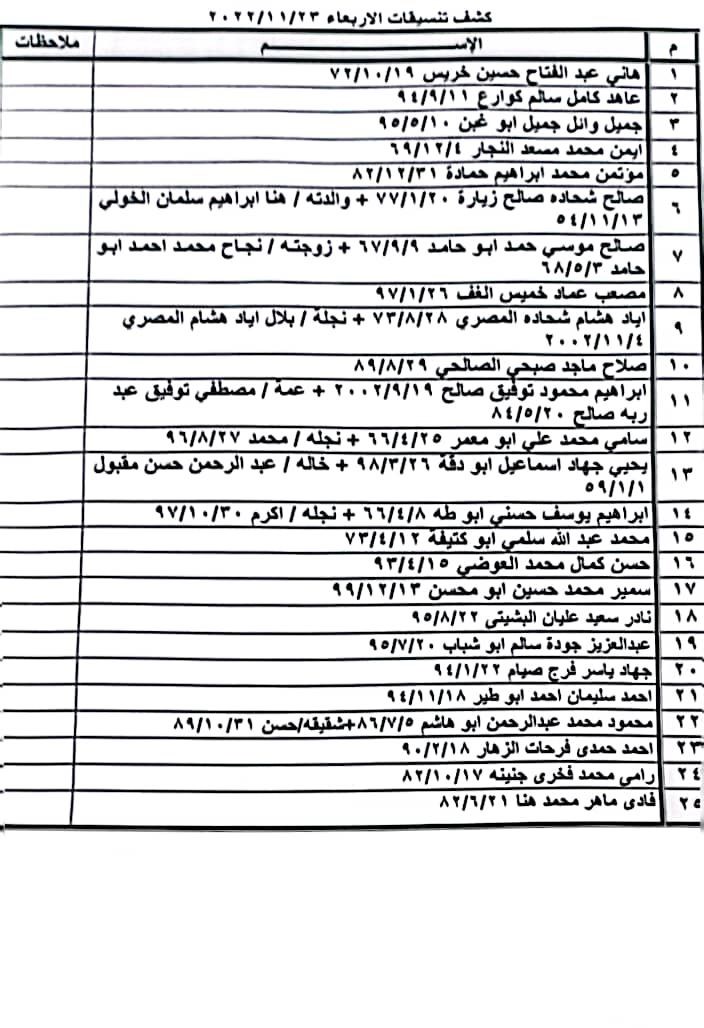 كشف تنسيقات الاربعاء ٢٠٢٢/١١/٢٣
م الإســــــــــــم ملاحظات
١ هاني عبد الفتاح حسين خريس ٧٢/١٠/١٩
٢ عاهد كامل سالم كوارع ٩٤/٩/١١
٣ جميل وائل جميل ابو غبن ٩٥/٥/١٠
٤ ايمن محمد مسعد النجار ٦٩/١٢/٤
٥ مؤتمن محمد ابراهيم حمادة ٨٢/١٢/٣١
٦ صالح شحاده صالح زيارة ٧٧/١/٢٠ + والدته / هنا ابراهيم سلمان الخولي
٥٤/١١/١٣
٧ صالح موسي حمد ابو حامد ٦٧/٩/٩ + زوجته / نجاح محمد احمد ابو
حامد ٦٨/٥/٣
٨ مصعب عماد خميس الغف ٩٧/١/٢٦
٩ اياد هشام شحاده المصري ٧٣/٨/٢٨ + نجلة / بلال اياد هشام المصري
٢٠٠٢/١١/٤
١٠ صلاح ماجد صبحي الصالحي ٨٩/٨/٢٩
١١ ابراهيم محمود توفيق صالح ٢٠٠٢/٩/١٩ + عمة / مصطفي توفيق عبد
ربه صالح ٨٤/٥/٢٠
١٢ سامي محمد علي ابو معمر ٦٦/٤/٢٥ + نجله / محمد ٩٦/٨/٢٧
١٣ يحيي جهاد اسماعيل ابو دقة ٩٨/٣/٢٦ + خاله / عبد الرحمن حسن مقبول
٥٩/١/١
١٤ ابراهيم يوسف حسني ابو طه ٦٦/٤/٨ + نجله / اكرم ٩٧/١٠/٣٠
١٥ محمد عبد الله سلمي ابو كتيفة ٧٣/٤/١٢
١٦ حسن كمال محمد العوضي ٩٣/٤/١٥
١٧ سمير محمد حسين ابو محسن ٩٩/١٢/١٣
١٨ نادر سعيد عليان البشيتى ٩٥/٨/٢٢
١٩ عبدالعزيز جودة سالم ابو شباب ٩٥/٧/٢٠
٢٠ جهاد ياسر فرج صيام ٩٤/١/٢٢
٢١ احمد سليمان احمد ابو طير ٩٤/١١/١٨
٢٢ محمود محمد عبدالرحمن ابو هاشم ٨٦/٧/٥+شقيقه/حسن ٨٩/١٠/٣١
٢٣ احمد حمدى فرحات الزهار ٩٠/٢/١٨
٢٤ رامى محمد فخرى جنينه ٨٢/١٠/١٧
٢٥ فادى ماهر محمد هنا ٨٢/٦/٢١